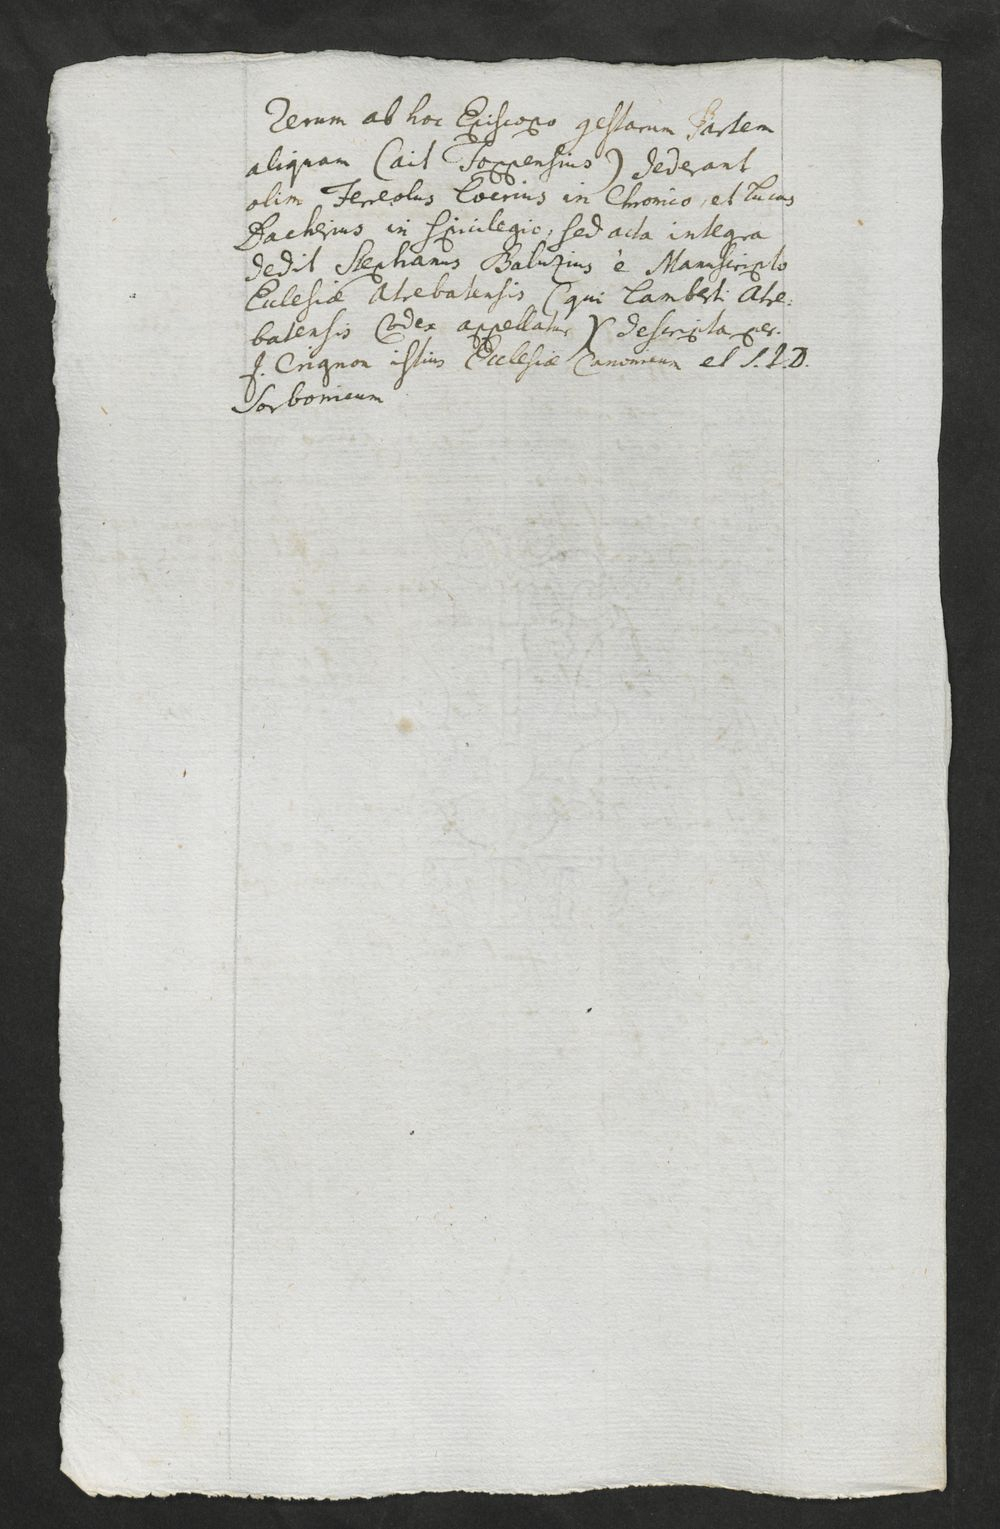 Rerum ab hoc Episcopo gestarum Partem
aliquam (ait Foppensius) dederant
olim Ferreolus Locrius in Chronico, et Lucas
Dacherius in Spicilegio; sed acta integra
dedit Stephanus Baluzius è Manuscripto
Ecclesiæ Atrebatensis (qui Lamberti Atre:
batensis Codex appellatur) descripta per.
J. Crignon istius Ecclesiæ Canonicum et S.T.D.
Sorbonicum